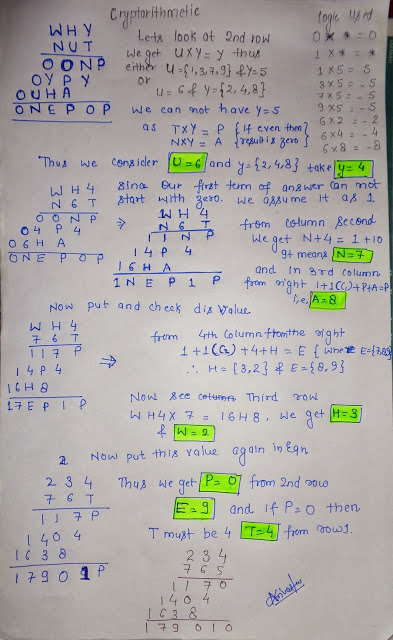 Cryptorithmetic
Logic Used
W H Y
N U T
O O N P
O Y P Y
O U H A
O N E P O P
Lets look at 2nd row
We get U X Y = Y thus
either U={1,3,7,9} & Y=5
or
U = 6 & Y={2,4,8}
We can not have Y=5
as T X Y = P { If even then
N X Y = A { result is zero }
0 * * = 0
1 * * = *
1 X 5 = 5
3 X 5 = - 5
7 X 5 = - 5
9 X 5 = - 5
6 X 2 = - 2
6 X 4 = - 4
6 X 8 = - 8
Thus we consider U=6 and y={2,4,8} take y=4
W H 4
N 6 T
O O N P
O 4 P 4
O 6 H A
O N E P O P
Since our first term of answer can not
start with zero. we assume it as 1
⇒
W H 4
N 6 T
1 1 N P
1 4 P 4
1 6 H A
1 N E P 1 P
from column second
We get N+4 = 1+10
It means N=7
and in 3rd column
from right 1+1(C1)+P+A=P
i.e, A=8
Now put and check dis value
W H 4
7 6 T
1 1 7 P
1 4 P 4
1 6 H 8
1 7 E P 1 P
⇒
from 4th column from the right
1 + 1(C2) + 4 + H = E { where E={7,8,9}
∴ H = {3,2} & E={8,9}
Now see Third row
W H 4 X 7 = 1 6 H 8. We get H=3
& W=2
Now put this value again in Eqn
2 3 4
7 6 T
1 1 7 P
1 4 0 4
1 6 3 8
1 7 9 0 1 P
Thus we get P=0 from 2nd row
E=9 and if P=0 then
T must be 4 T=4 from row 1.
2 3 4
7 6 5
1 1 7 0
1 4 0 4
1 6 3 8
1 7 9 0 1 0